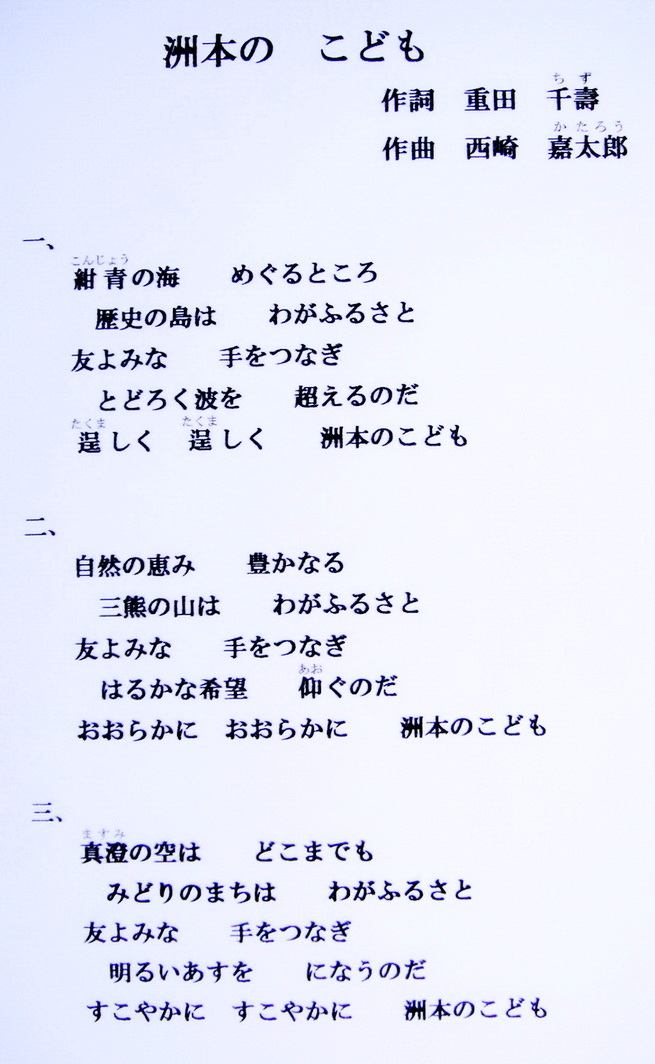 洲本の　こども
作詞　重田　千壽
ちず
作曲　西崎　嘉太郎
かたろう
一、
こんじょう
紺青の海　　めぐるところ
歴史の島は　　わがふるさと
友よみな　　手をつなぎ
とどろく波を　　超えるのだ
たくま　たくま
逞しく　逞しく　　洲本のこども
二、
自然の恵み　　豊かなる
三熊の山は　　わがふるさと
友よみな　　手をつなぎ
あお
はるかな希望　　仰ぐのだ
おおらかに　おおらかに　　洲本のこども
三、
ますみ
真澄の空は　　どこまでも
みどりのまちは　　わがふるさと
友よみな　　手をつなぎ
明るいあすを　　になうのだ
すこやかに　すこやかに　　洲本のこども